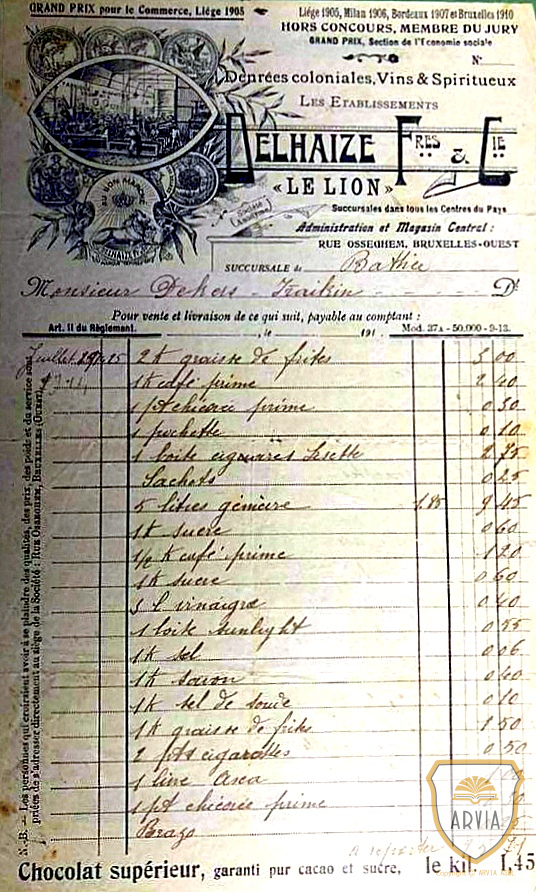 GRAND PRIX pour le Commerce, Liége 1905
Liége 1905, Milan 1906, Bordeaux 1907 et Bruxelles 1910
HORS CONCOURS, MEMBRE DU JURY
GRAND PRIX, Section de l'Economie sociale
N°
Denrées coloniales, Vins & Spiritueux
LES ETABLISSEMENTS
DELHAIZE FRES & CIE
« LE LION »
Société Anonyme
BON MARCHÉ
Succursales dans tous les Centres du Pays
Administration et Magasin Central :
RUE OSSEGHEM, BRUXELLES-OUEST
SUCCURSALE de Battice
Monsieur Dehers - Fraikin Dt
Pour vente et livraison de ce qui suit, payable au comptant :
Art. 11 du Règlement. , le 191 . Mod. 37A - 50.000 - 9-13.
Juillet 2 k graisse de frites 3 00
1914 1 k café prime 2 40
1 pt chicorée prime 0 30
1 pochette 0 10
1 boite cigares Lisette 2 75
Sachets 0 25
5 litres genièvre 1.85 9 45
1 k sucre 0 60
1/2 k café prime 1 20
1 k sucre 0 60
3 l vinaigre 0 40
1 boite sunlight 0 55
1 k sel 0 06
1 k savon 0 40
1 k sel de soude 0 10
1 k graisse de frites 1 50
2 pts cigarettes 0 50
1 livre
1 pt chicorée prime
Brazo
à reporter
N.-B. — Les personnes qui croiraient avoir à se plaindre des qualités, des prix, des poids et du service sont
priées de s'adresser directement au siège de la Société : RUE OSSEGHEM, BRUXELLES (OUEST).
Chocolat supérieur, garanti pur cacao et sucre, le kil. 1.45
ARVIA